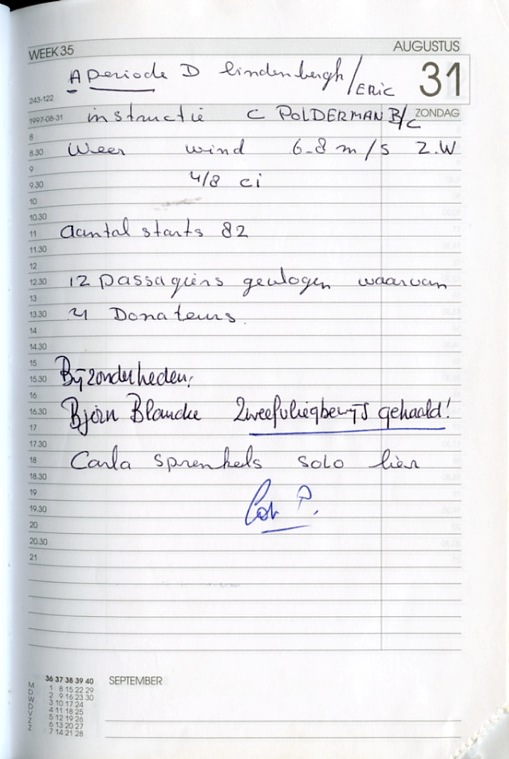 WEEK 35 AUGUSTUS
A periode D lindenbergh/ERIC 31
243-122
1997-08-31 instructie C POLDERMAN B/C ZONDAG
8
8.30 Weer wind 6-8 m/s Z.W
9
9.30 4/8 ci
10
10.30
11 aantal starts 82
11.30
12
12.30 12 passagiers gevlogen waarvan
13
13.30 4 Donateurs.
14
14.30
15
15.30 Bijzonderheden:
16
16.30 Bjorn Blancke Zweefvliegbewijs gehaald!
17
17.30
18 Carla sprenkels solo lier
18.30
19
19.30 Cor P.
20
20.30
21
36 37 38 39 40 SEPTEMBER
M 1 8 15 22 29
D 2 9 16 23 30
W 3 10 17 24
D 4 11 18 25
V 5 12 19 26
Z 6 13 20 27
Z 7 14 21 28